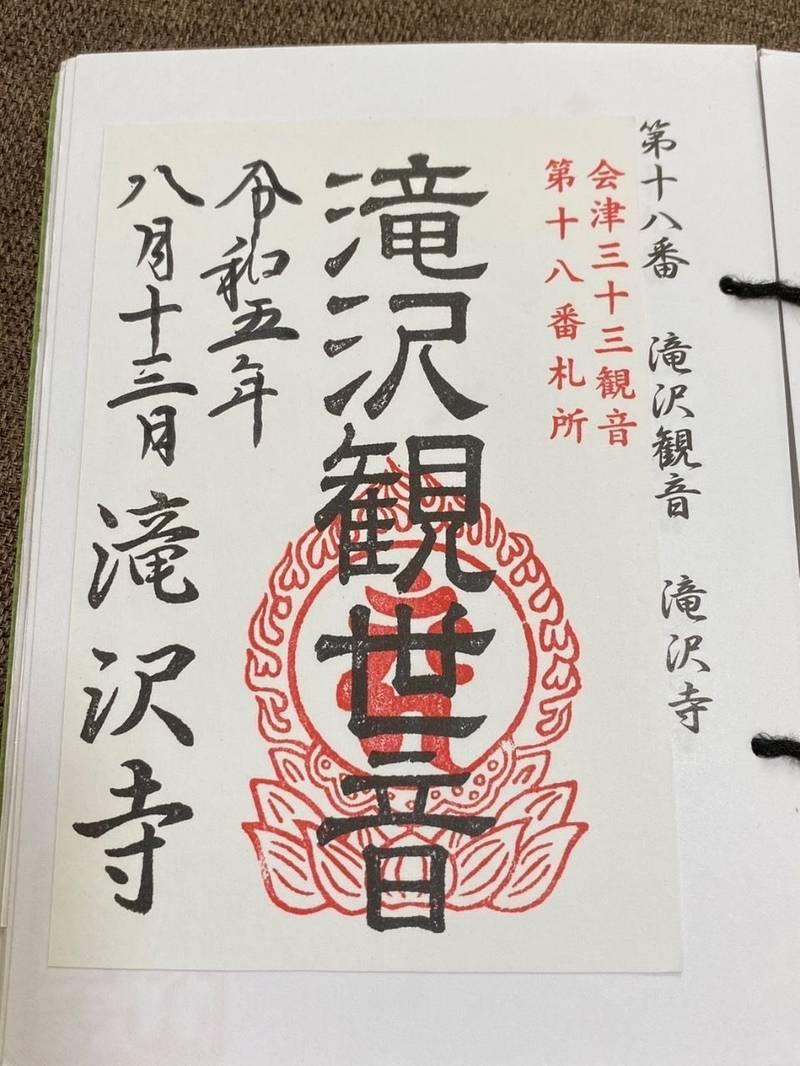 第十八番 滝沢観音 滝沢寺
会津三十三観音
第十八番札所
滝沢観世音
令和五年
八月十三日 滝沢寺